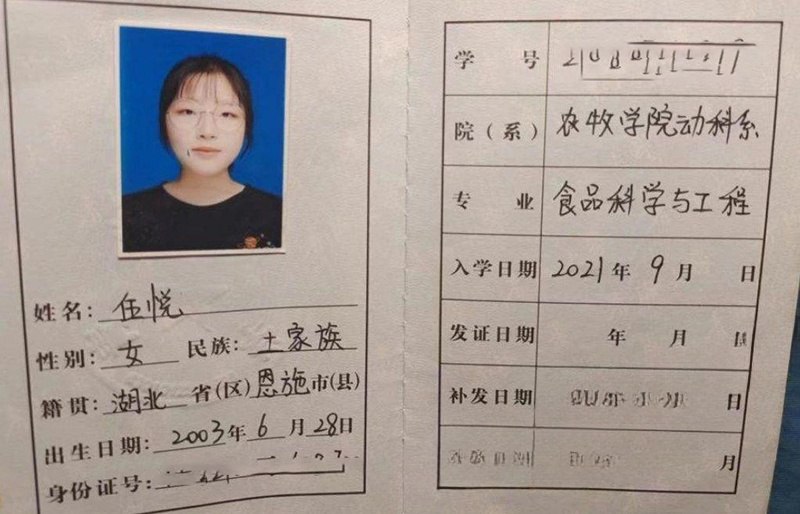 姓名：伍悦
性别：女 民族：土家族
籍贯：湖北省(区)恩施市(县)
出生日期：2003年6月28日
身份证号：
学号
院（系） 农牧学院动科系
专业 食品科学与工程
入学日期 2021年9月 日
发证日期 年 月 日
补发日期 日
月